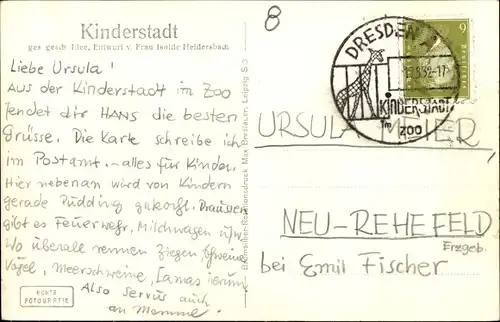 Kinderstadt
ges. gesch. Idee, Entwurf v. Frau Isolde Heidersbach
Liebe Ursula!
Aus der Kinderstadt im Zoo
sendet dir Hans die besten
Grüsse. Die Karte schreibe ich
im Postamt. - alles für Kinder.
Hier nebenan wird von Kindern
gerade Pudding gekocht. Draussen
gibt es Feuerwehr, Milchwagen usw.
Wo überall rennen Ziegen, Schweine
Vögel, Meerschweine, Lamas herum
Also servus auch
an Mamme!
ECHTE
FOTOGRAFIE
Rotationsdruck Max Breslauer, Leipzig S 3
8
DRESDEN A
32-17
KINDERSTADT
Im
ZOO
6
URSULA MEIER
NEU-REHEFELD
Erzgeb.
bei Emil Fischer